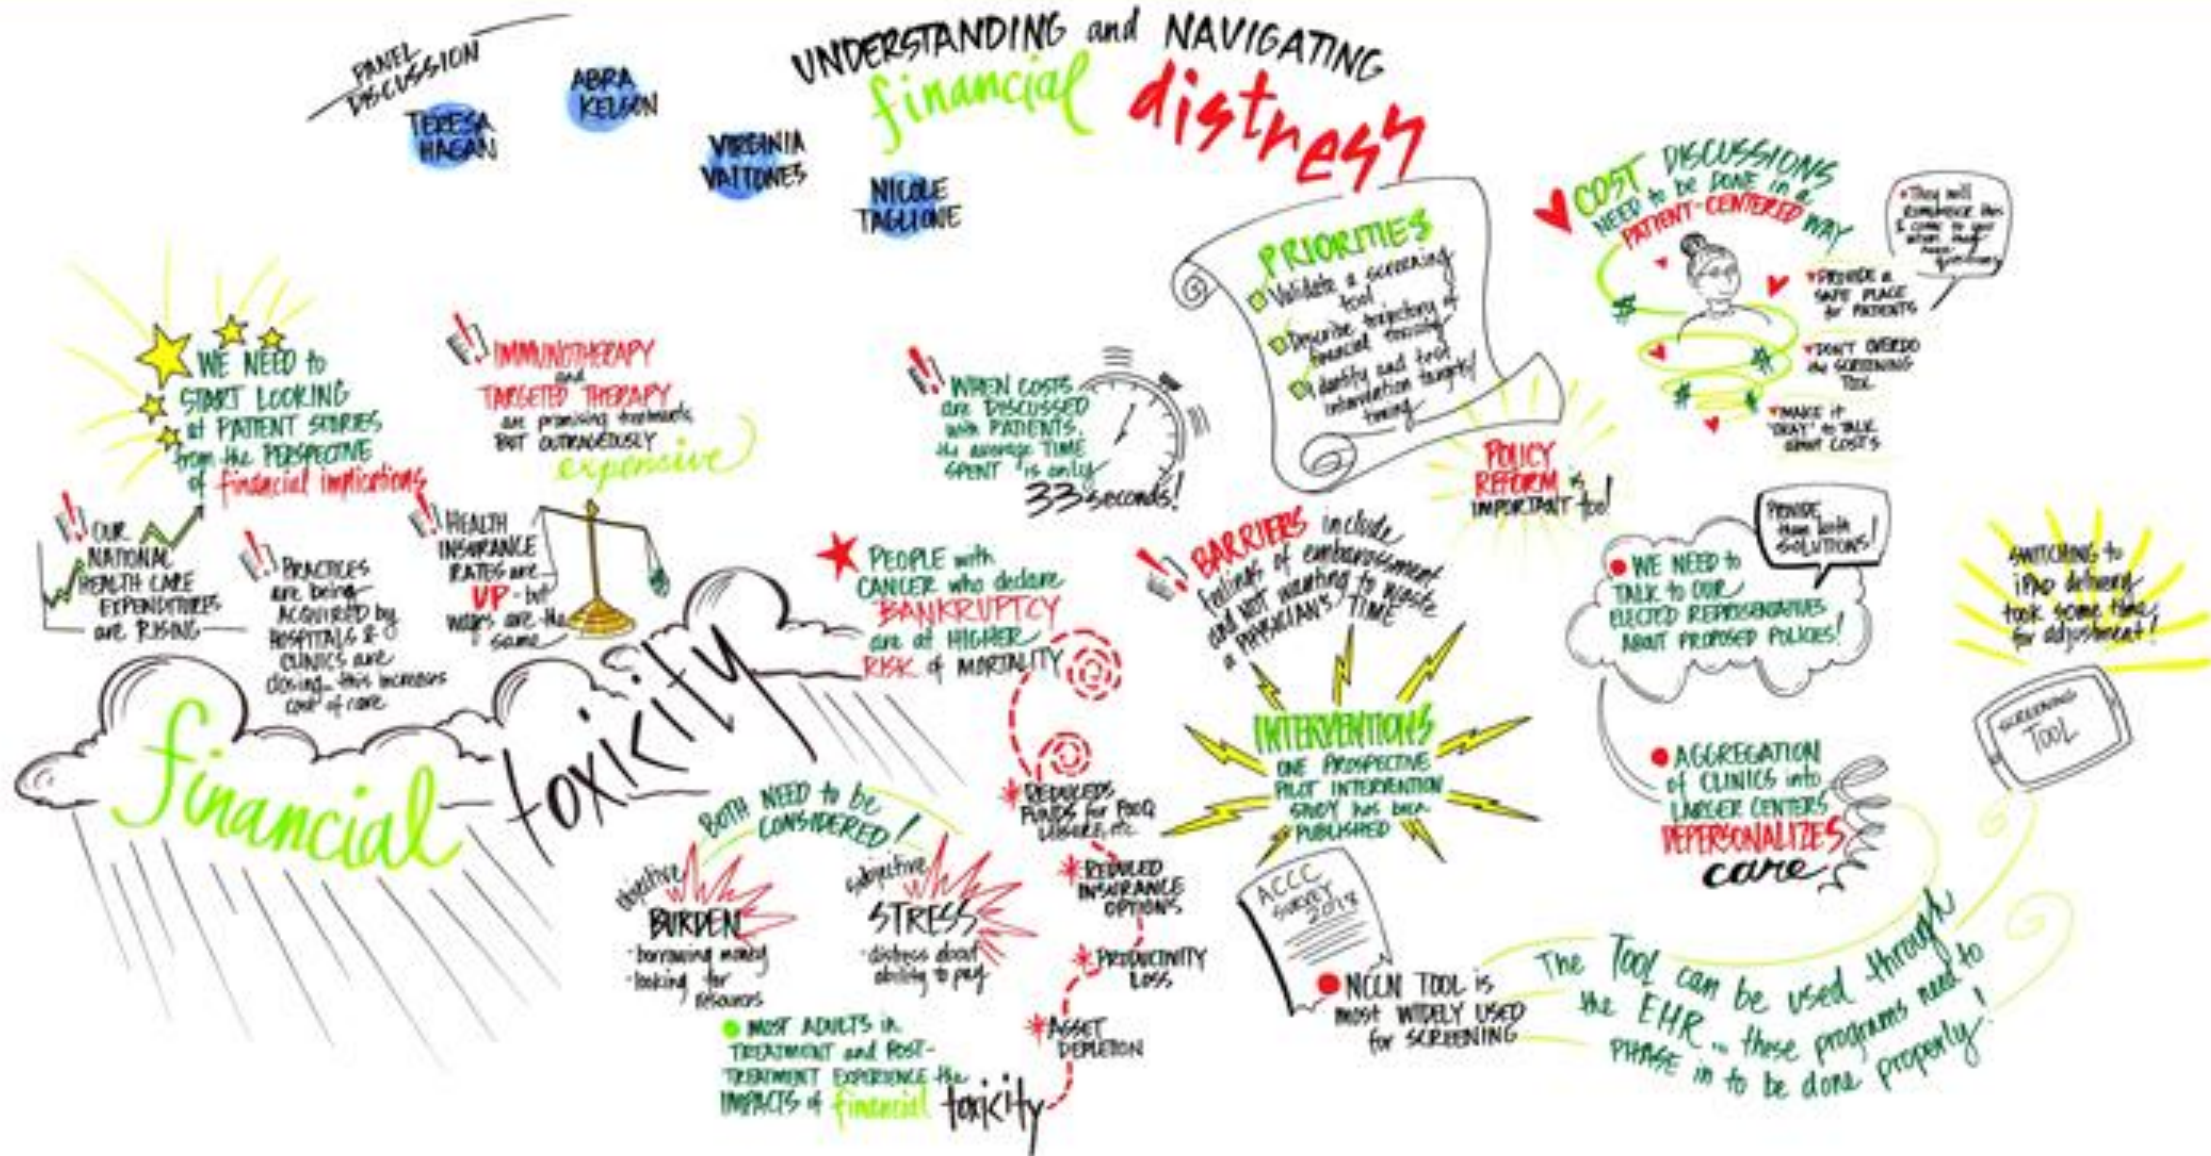 PANEL
DISCUSSION
TERESA
HAGAN
ABRA
KELSON
VIRGINIA
VAITONES
NICOLE
TAGLIONE
UNDERSTANDING and NAVIGATING
financial distress
WE NEED to
START LOOKING
at PATIENT STORIES
from the PERSPECTIVE
of financial implications
!! IMMUNOTHERAPY
and
TARGETED THERAPY
are promising treatments
BUT OUTRAGEOUSLY
expensive
!! OUR
NATIONAL
HEALTH CARE
EXPENDITURES
are RISING
!! PRACTICES
are being
ACQUIRED by
HOSPITALS &
CLINICS are
closing... this increases
cost of care
!! HEALTH
INSURANCE
RATES are
UP - but
wages are the
same
financial toxicity
!! WHEN COSTS
are DISCUSSED
with PATIENTS,
the average TIME
SPENT is only
33 seconds!
PEOPLE with
CANCER who declare
BANKRUPTCY
are at HIGHER
RISK of MORTALITY
BOTH NEED to be
CONSIDERED!
objective
BURDEN
- borrowing money
- looking for
resources
subjective
STRESS
- distress about
ability to pay
MOST ADULTS in
TREATMENT and POST-
TREATMENT EXPERIENCE the
IMPACTS of financial toxicity
FUNDS for
LEISURE, etc.
REDUCED
INSURANCE
OPTIONS
PRODUCTIVITY
LOSS
ASSET
DEPLETION
PRIORITIES
Validate a screening
tool
Describe trajectory of
financial toxicity
Identify and test
intervention targets/
timing
POLICY
REFORM is
IMPORTANT too!
!! BARRIERS include
feelings of embarassment
and NOT wanting to waste
a PHYSICIAN'S TIME
INTERVENTIONS
ONE PROSPECTIVE
PILOT INTERVENTION
STUDY has been
PUBLISHED
ACCC
SURVEY
NCCN TOOL is
most WIDELY USED
for SCREENING
COST DISCUSSIONS
NEED to be DONE in a
PATIENT-CENTERED WAY
They will
remember this
& come to you
when they
have
PROVIDE a
SAFE PLACE
for PATIENTS
DON'T OVERDO
the SCREENING
TOOL
MAKE it
"OKAY" to TALK
about COSTS
WE NEED to
TALK to OUR
ELECTED REPRESENTATIVES
ABOUT PROPOSED POLICIES!
PROVIDE
them with
SOLUTIONS!
AGGREGATION
of CLINICS into
LARGER CENTERS
DEPERSONALIZES
care
SWITCHING to
iPad delivery
took some time
for adjustment!
SCREENING
TOOL
The TOOL can be used through
the EHR... these programs need to
PHASE in to be done properly!